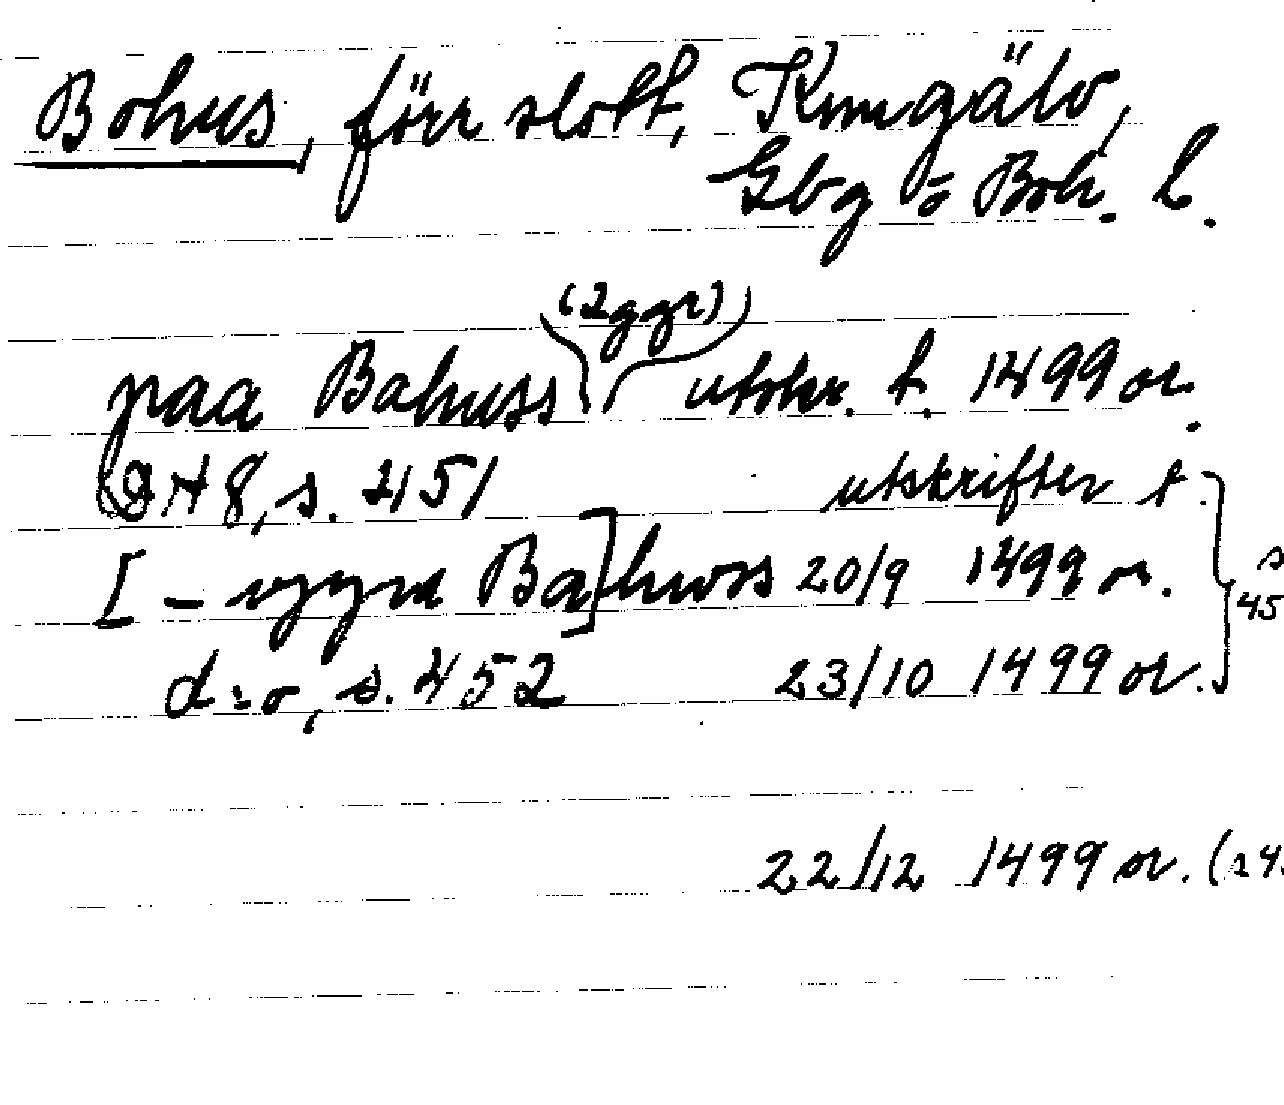 Bohus, förr slott, Kungälv,
Gbg o Boh. L.
(2ggr)
paa Bahuss utskr. t. 1499 or.
DN 8, s. 451 utskrifter t.
[– Ba]hwss 20/9 1499 or.
d:o, s. 452 23/10 1499 or.
22/12 1499 or.